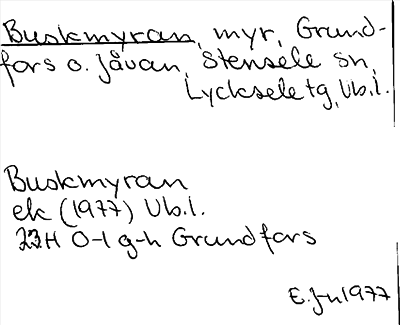 Buskmyran, myr, Grund-
fors o. Jåvan, Stensele sn,
Lycksele tg, Vb.l.
Buskmyran
ek (1977) Vb.l.
23H 0-1 g-h Grundfors
E. J-n 1977